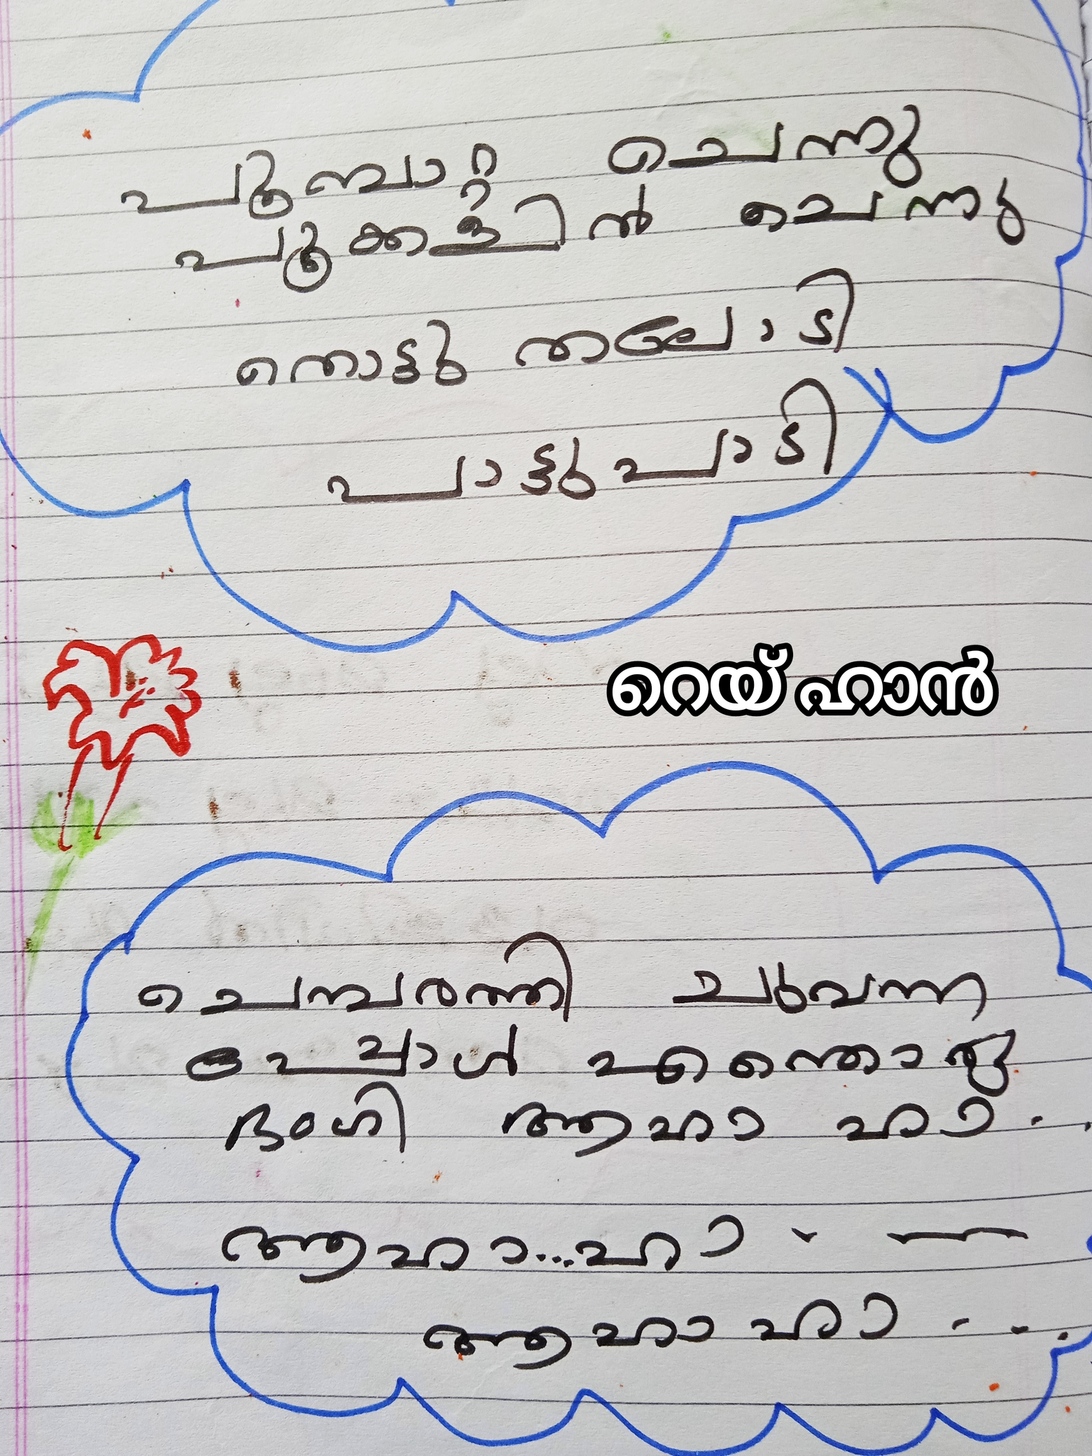 പൂമ്പാറ്റ ചെന്നു
പൂക്കളിൽ ചെന്നു
തൊട്ടു തലോടി
പാട്ടുപാടി
റെയ് ഹാൻ
ചെമ്പരത്തി ചുവന്ന
പ്പോൾ എന്തൊരു
ഭംഗി ആഹാ ഹാ..
ആഹാ...ഹാ - —
ആഹാ ഹാ ...